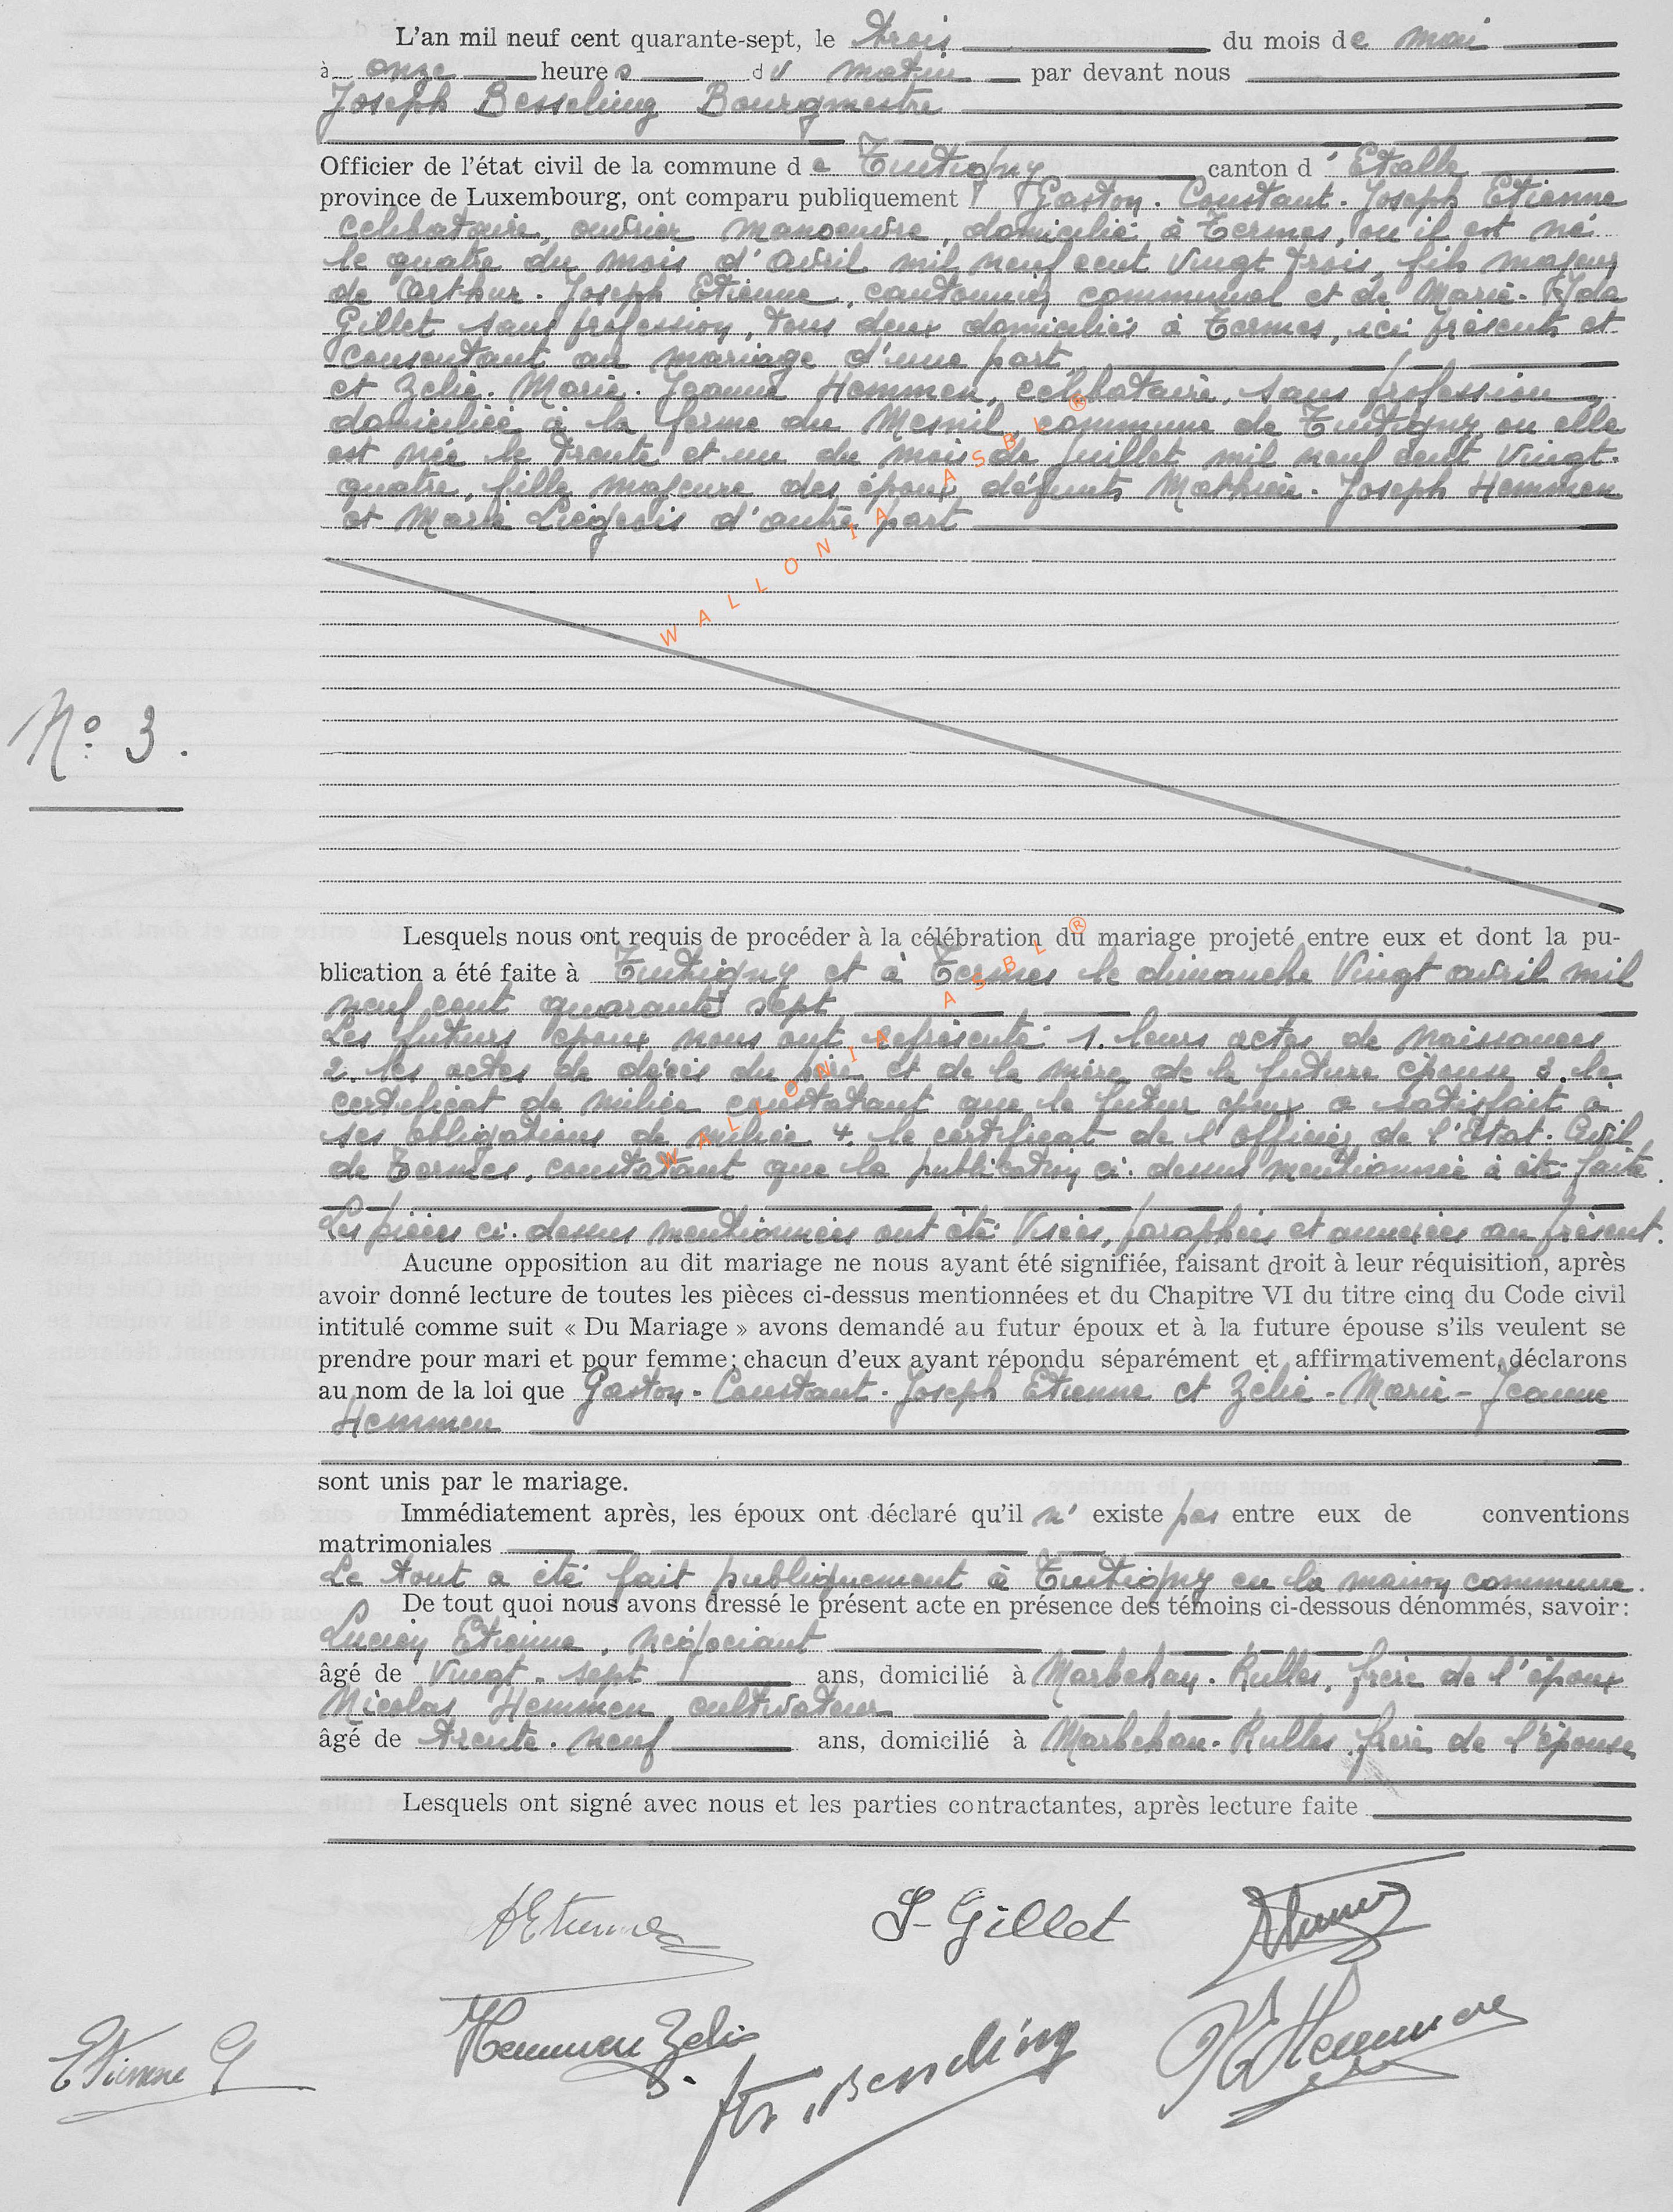 L'an mil neuf cent quarante-sept, le trois du mois de mai
à onze heures du matin par devant nous
Joseph Besseling Bourgmestre
Officier de l'état civil de la commune de Tintigny canton d'Etalle
province de Luxembourg, ont comparu publiquement Gaston-Constant-Joseph Etienne
celibataire, ouvrier manoeuvre, domicilié à Termes, ou il est né
le quatre du mois d'avril mil neuf cent vingt trois, fils majeur
de Arthur-Joseph Etienne, cantonnier communal et de Marie-Ida
Gillet sans profession, tous deux domiciliés à Termes, ici présents et
consentant au mariage d'une part
et Zelie-Marie-Jeanne Hemmen, celibataire, sans profession,
domiciliée à la ferme du Mesnil, commune de Tintigny ou elle
est née le trente et un du mois de juillet mil neuf cent vingt-
quatre, fille majeure des époux défunts Mathieu-Joseph Hemmen
et Marie Liégeois d'autre part
N° 3.
Lesquels nous ont requis de procéder à la célébration du mariage projeté entre eux et dont la pu-
blication a été faite à Tintigny et à Termes le dimanche vingt avril mil
neuf cent quarante sept
Les futurs époux nous ont représenté 1. leurs actes de naissances
2. les actes de décès du père et de la mère de la future épouse 3. le
certificat de milice constatant que le futur époux a satisfait à
ses obligations de milice 4. le certificat de l'officier de l'Etat-Civil
de Termes, constatant que la publication ci-dessus mentionnée à été faite.
Les pièces ci-dessus mentionnées ont été visées, paraphées et annexées au présent.
Aucune opposition au dit mariage ne nous ayant été signifiée, faisant droit à leur réquisition, après
avoir donné lecture de toutes les pièces ci-dessus mentionnées et du Chapitre VI du titre cinq du Code civil
intitulé comme suit « Du Mariage » avons demandé au futur époux et à la future épouse s'ils veulent se
prendre pour mari et pour femme; chacun d'eux ayant répondu séparément et affirmativement, déclarons
au nom de la loi que Gaston-Constant-Joseph Etienne et Zélie-Marie-Jeanne
Hemmen
sont unis par le mariage.
Immédiatement après, les époux ont déclaré qu'il n'existe pas entre eux de conventions
matrimoniales
Le tout a été fait publiquement à Tintigny en la maison commune.
De tout quoi nous avons dressé le présent acte en présence des témoins ci-dessous dénommés, savoir:
Lucien Etienne, négociant
âgé de vingt-sept ans, domicilié à Marbehan-Rulles, frère de l'époux
Nicolas Hemmen cultivateur
âgé de trente-neuf ans, domicilié à Marbehan-Rulles, frère de l'épouse
Lesquels ont signé avec nous et les parties contractantes, après lecture faite
AEtienne
I-Gillet
Hemmen Zelie
Etienne G
Jos. Besseling
N Hemmen
WALLONIA ASBL ®
WALLONIA ASBL ®